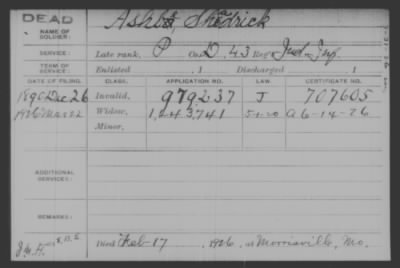 DEAD
NAME OF SOLDIER: Ashby, Shedrick
SERVICE: Late rank, P Co. D, 43 Reg't Ind. Inf.
TERM OF SERVICE: Enlisted , 1 Discharged , 1
DATE OF FILING. CLASS. APPLICATION NO. LAW. CERTIFICATE NO.
1890 Dec 26 Invalid, 979237 J 707605
1926 Mar 22 Widow, 1,243,741 5-1-20 A 6-14-26
Minor,
ADDITIONAL SERVICE:
REMARKS:
Died Feb-17, 1926, at Morrisville, Mo.